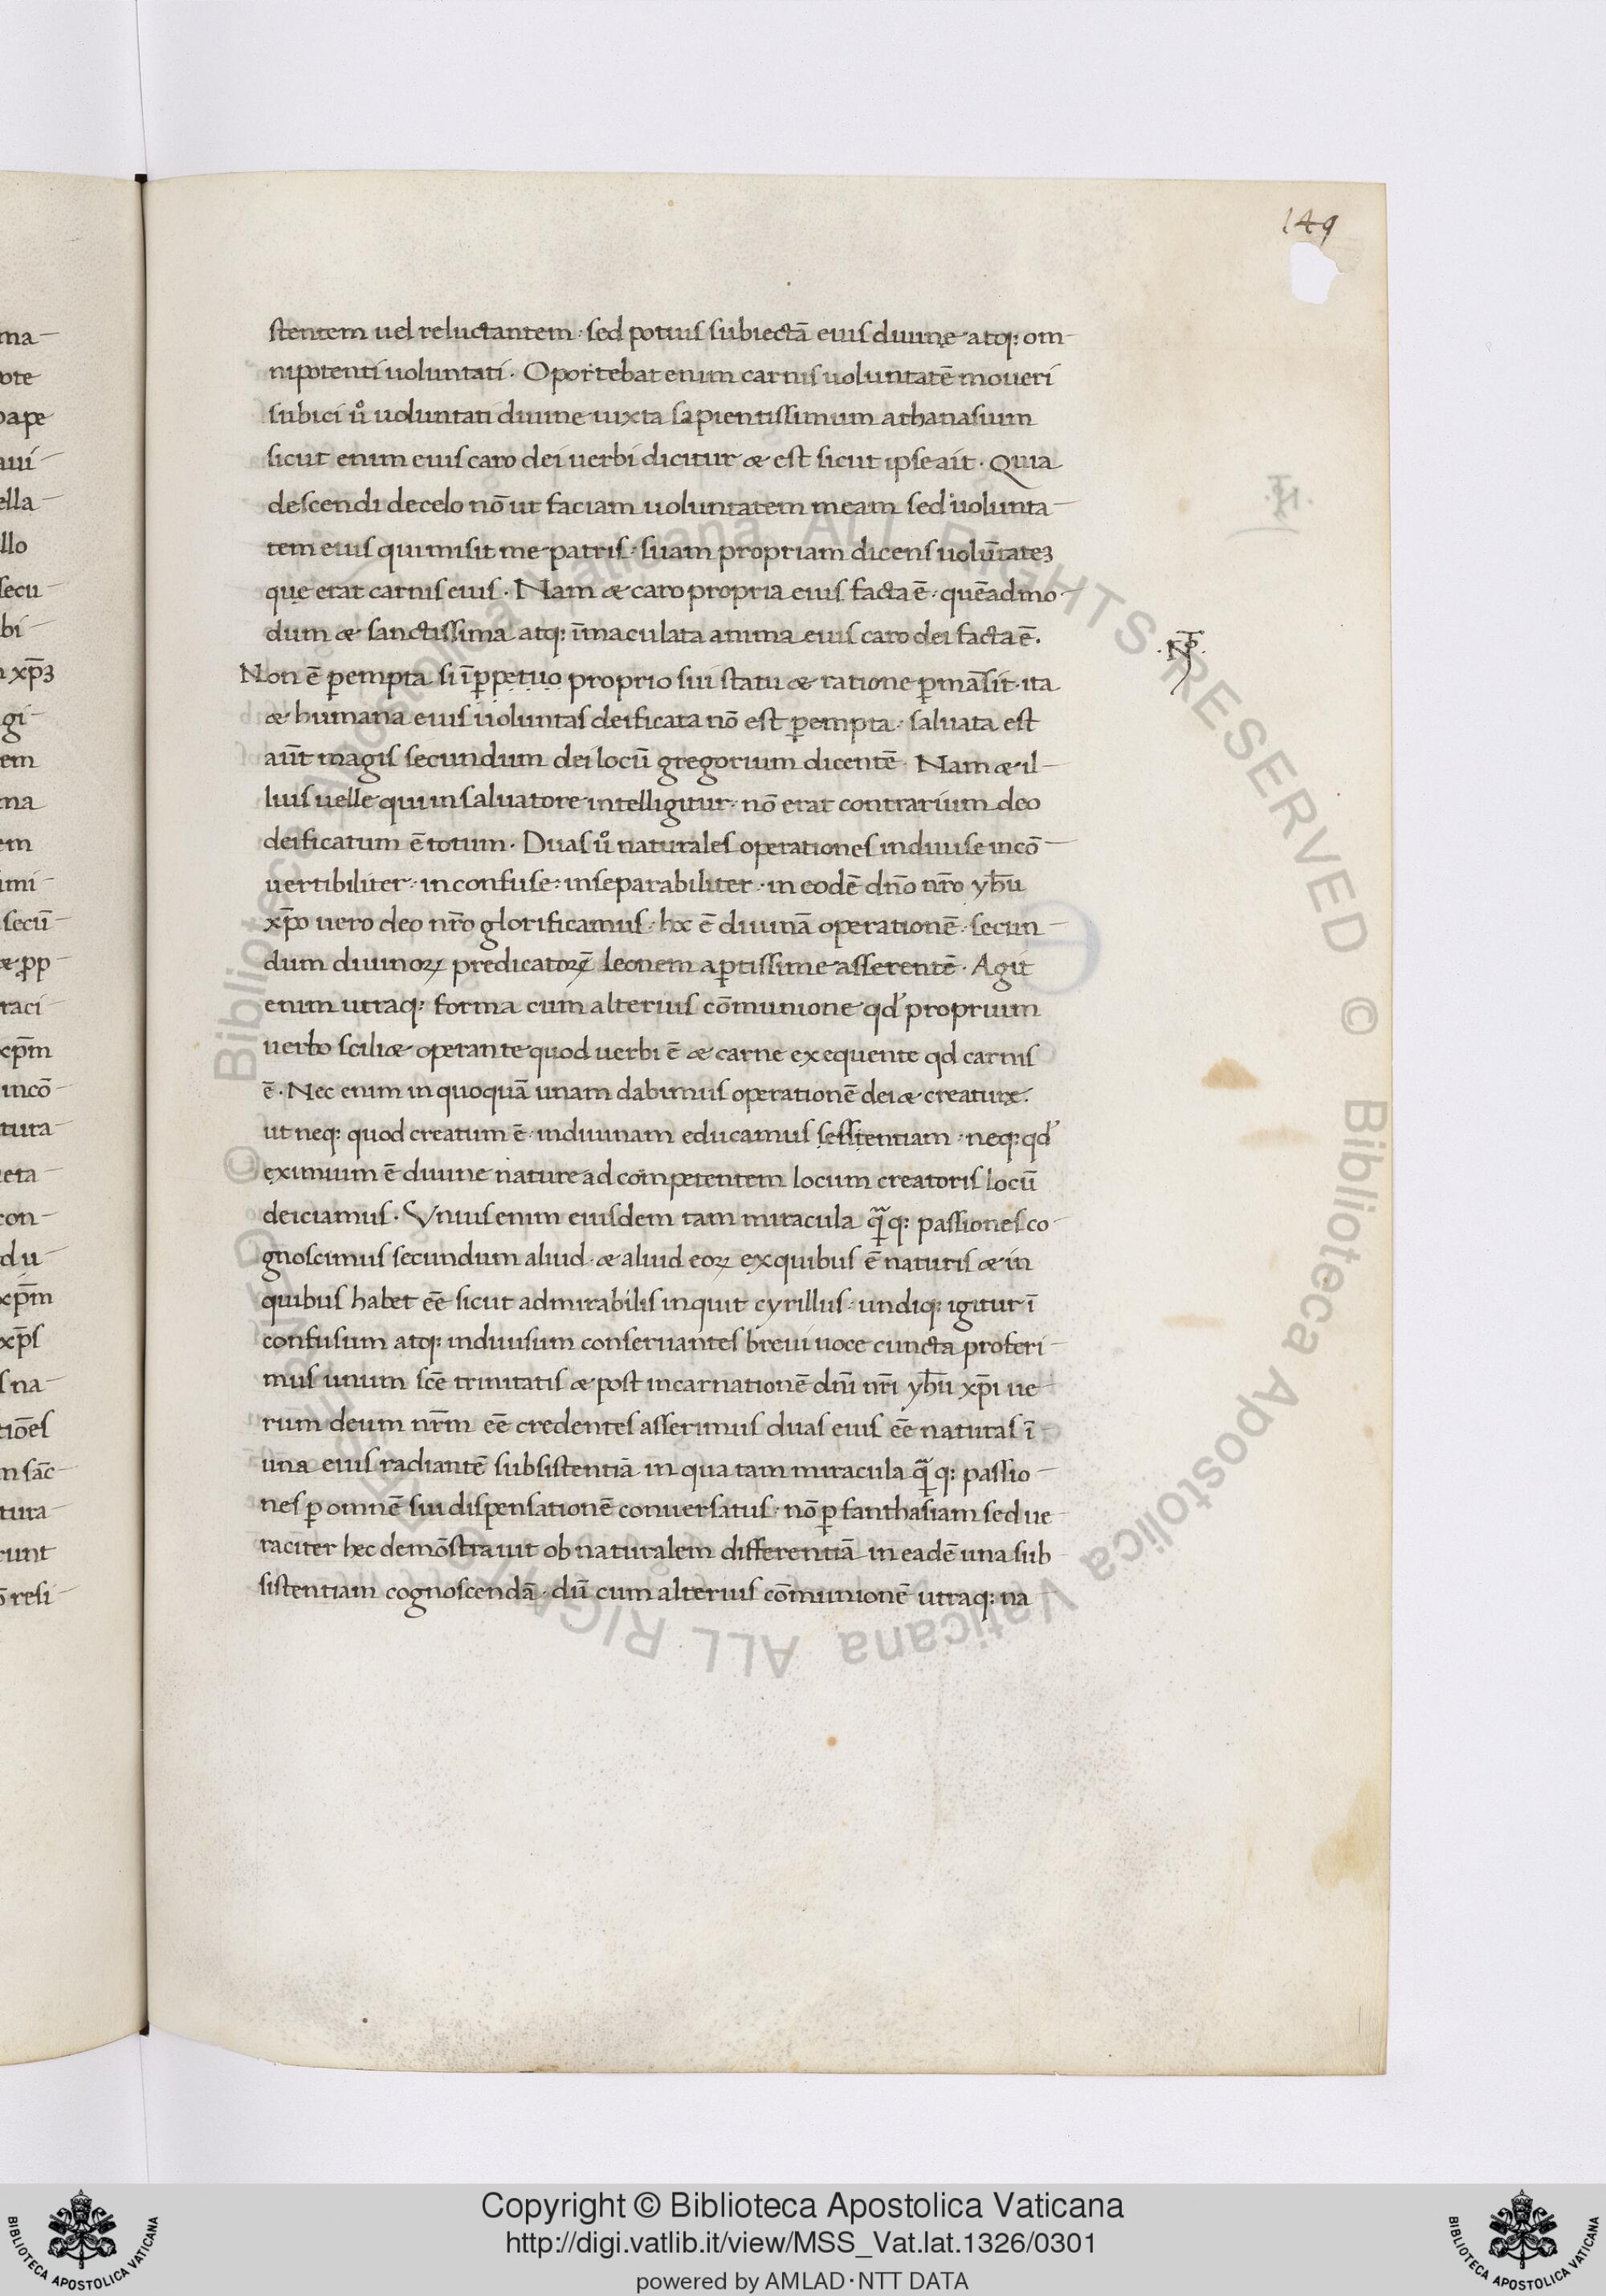 149
stentem uel reluctantem · sed potius subiectā eius diuinę atq; om-
nipotenti uoluntati · Oportebat enim carnis uoluntatē moueri
subici u͛o uoluntati diuine iuxta sapientissimum athanasium
sicut enim eius caro dei uerbi dicitur & est sicut ipse ait · Quia
descendi de celo nō ut faciam uoluntatem meam sed uolunta-
tem eius qui misit me patris · suam propriam dicens uolūtateʒ
quę erat carnis eius · Nam & caro propria eius facta ē · quēadmo-
dum & sanctissima atq; īmaculata anima eius caro dei facta ē.
·N̄P̄·
Non ē ꝑempta si īꝑpetuo proprio sui statu & ratione ꝑmāsit · ita
& humana eius uoluntas deificata nō est ꝑempta · saluata est
aūt magis secundum dei locū gregorium dicentē · Nam & il-
lius uelle qui in saluatore intelligitur · nō erat contrarium deo
deificatum ē totum · Duas u͛o naturales operationes indiuise incō-
uertibiliter · inconfuse · inseparabiliter · in eodē dn̄o nr̄o yh̄u
xp̄o uero deo nr̄o glorificamus · hoc ē diuinā operationē · secun-
dum diuinoꝝ predicatoꝝ̄ leonem aꝑtissime asserentē · Agit
enim utraq; forma cum alterius cōmunione qd̓ proprium
uerbo scili& operante quod uerbi ē & carne exequente qd carnis
ē · Nec enim in quoquā unam dabimus operationē dei & creaturæ·
ut neq; quod creatum ē · in diuinam educamus sessitentiam · neq; qd̓
eximium ē diuine nature ad competentem locum creatoris locū
deiciamus · Vnius enim eiusdem tam miracula q̄ꝗ; passiones co-
gnoscimus secundum aliud · & aliud eoꝝ ex quibus ē naturis & in
quibus habet eē̄ sicut admirabilis inquit cyrillus · undiq; igitur ī
confusum atq; indiuisum conseruantes breui uoce cuncta proferi-
mus unum scē trinitatis & post incarnationē dn̄i nr̄i yh̄u xp̄i ue-
rum deum nr̄m eē̄ credentes asserimus duas eius eē̄ naturas ī
una eius radiantē subsistentiā in qua tam miracula q̄ꝗ; passio-
nes ꝑ omnē sui dispensationē conuersatus · nō ꝑ fanthasiam sed ue-
raciter hec demōstrauit ob naturalem differentiā in eadē una sub-
sistentiam cognoscendā · dū cum alterius cōmunionē utraq; na-
Copyright © Biblioteca Apostolica Vaticana
http://digi.vatlib.it/view/MSS_Vat.lat.1326/0301
powered by AMLAD·NTT DATA